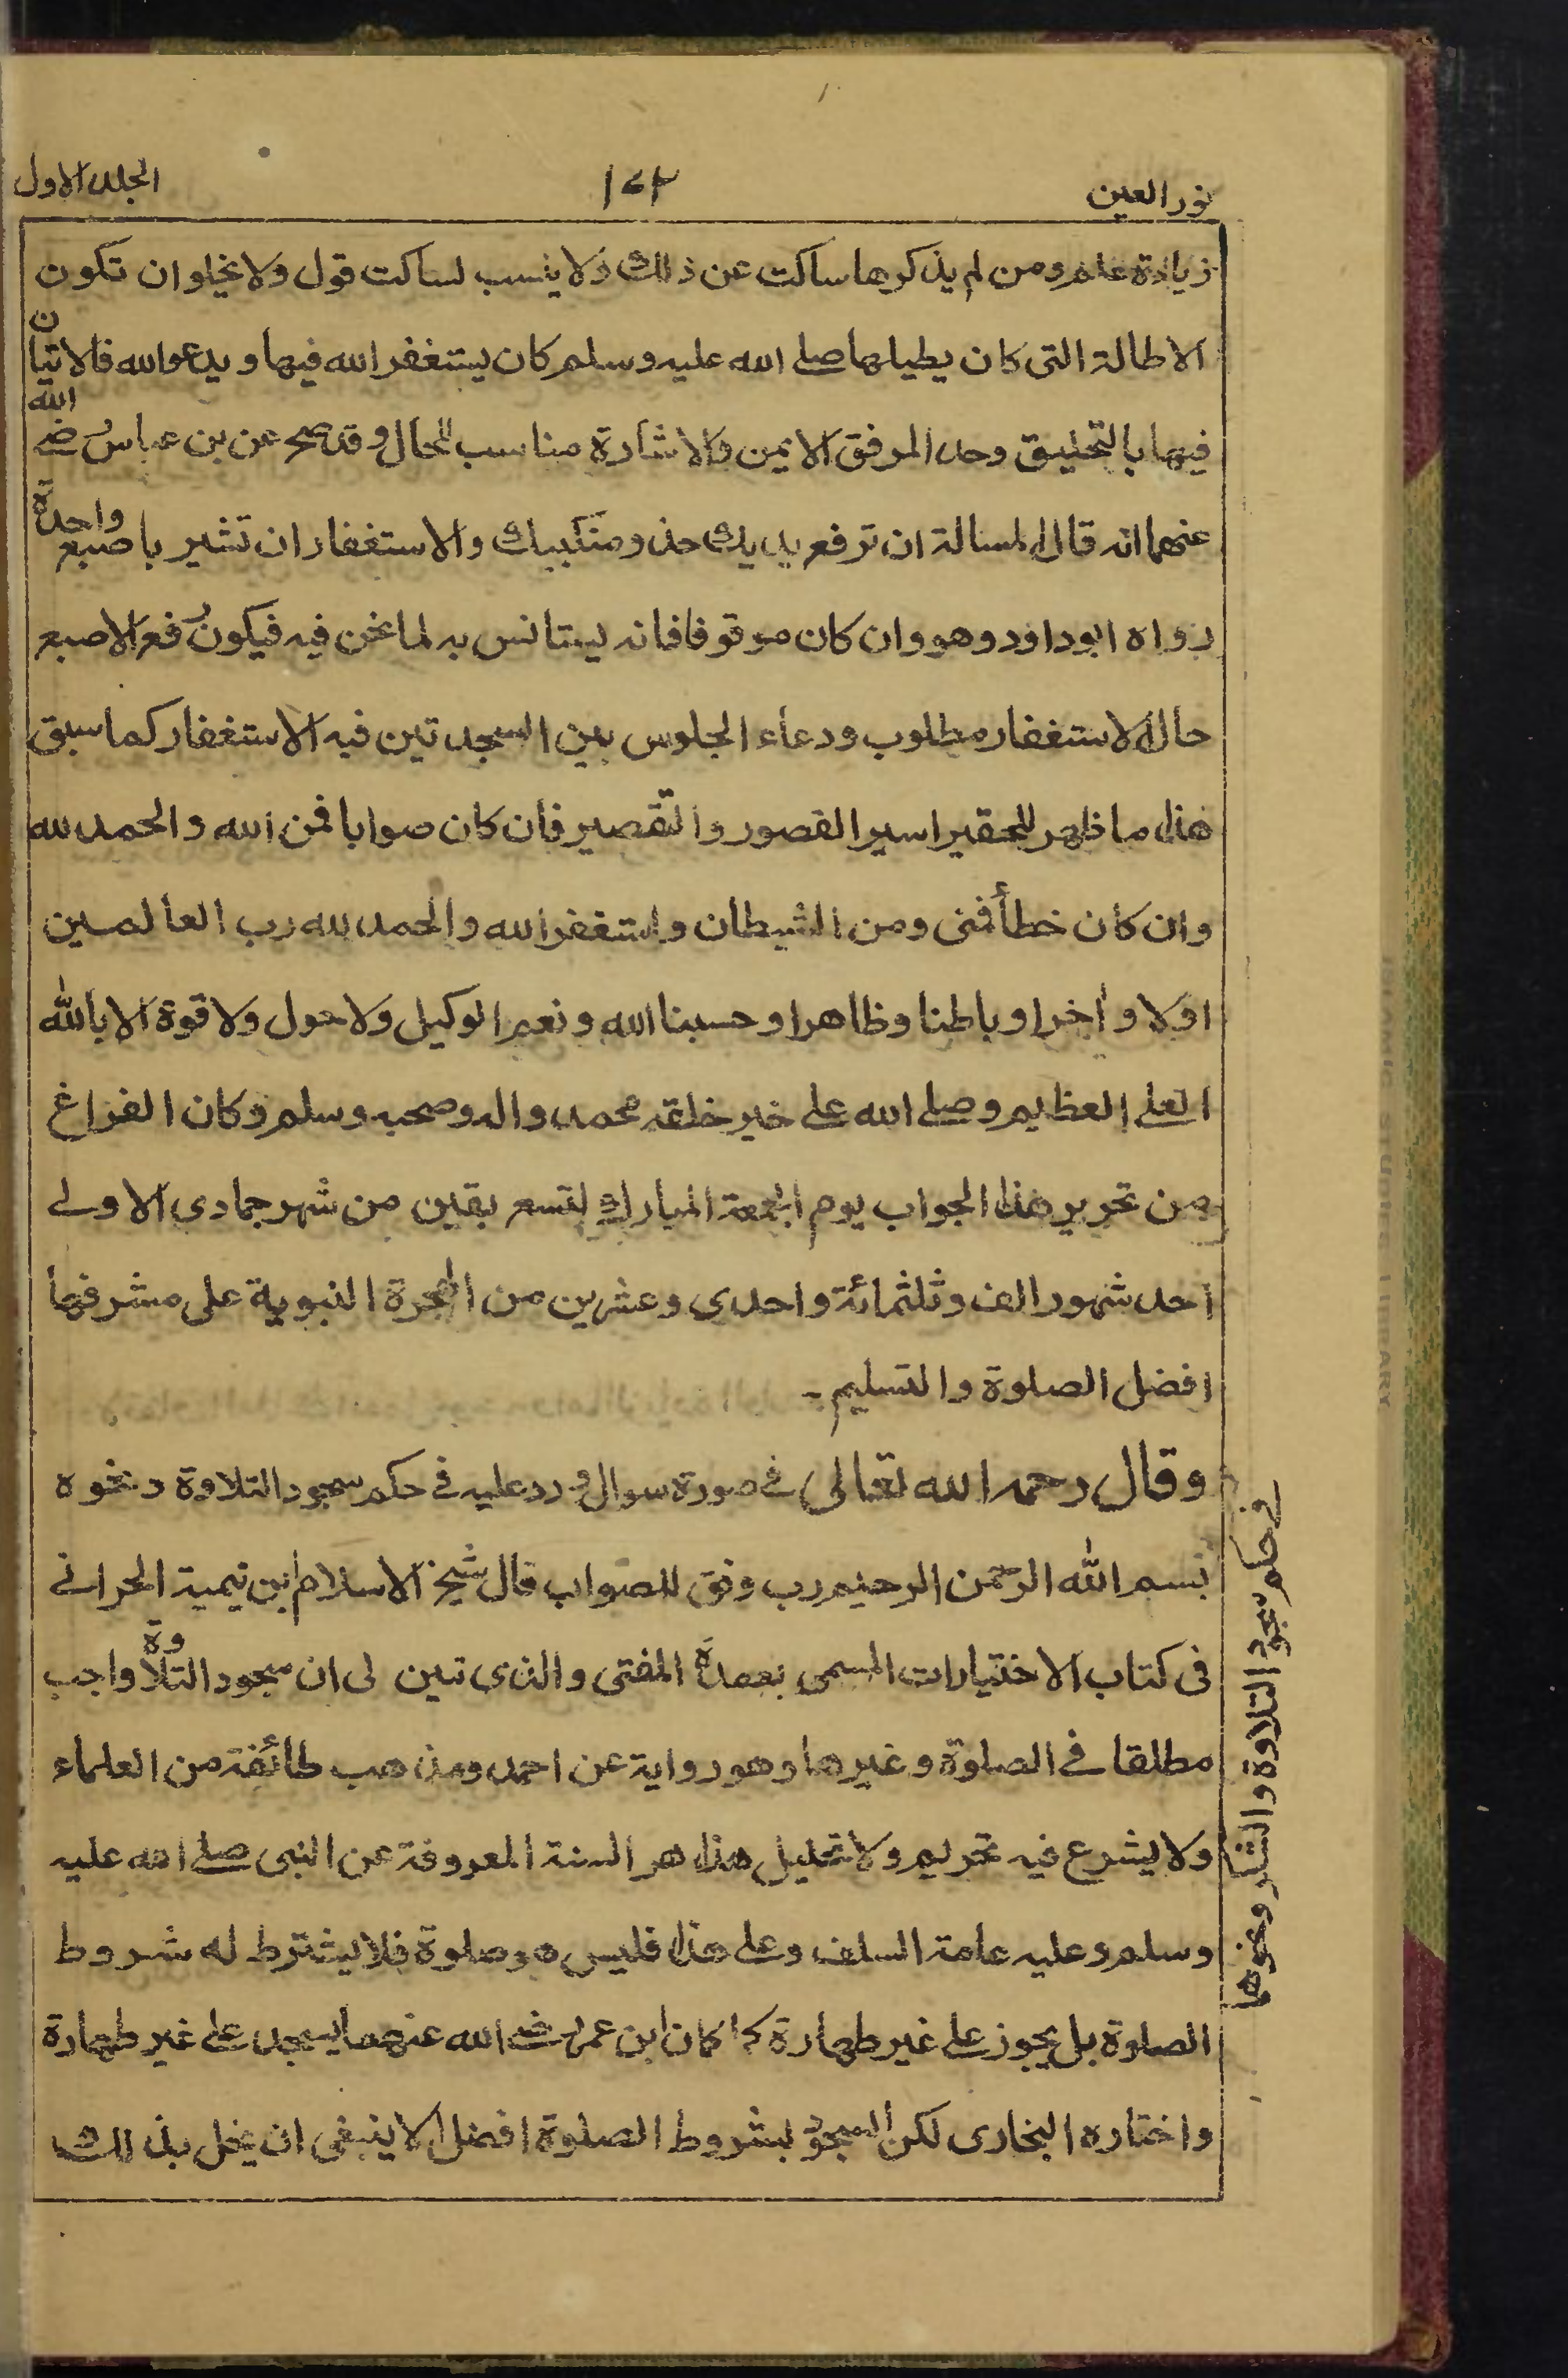 نور العين
١٧٢
الجلد الاول
زيادة علم ومن لم يذكرها ساكت عن ذلك ولا ينسب لساكت قول ولا يخلو ان تكون
الاطالة التى كان يطيلها صلى الله عليه وسلم كان يستغفر الله فيها ويدعو الله فالاتيان
فيها بالتحليق وحد المرفق الايمن والاشارة مناسب للحال وقد صح عن بن عباس رضى الله
عنهما انه قال المسالة ان ترفع يديك حذو منكبيك والاستغفار ان تشير باصبع واحدة
رواه ابو داود وهو وان كان موقوفا فانه يستانس به لما نحن فيه فيكون رفع الاصبع
حال الاستغفار مطلوب ودعاء الجلوس بين السجدتين فيه الاستغفار كما سبق
هذا ما ظهر للحقير اسير القصور والتقصير فان كان صوابا فمن الله والحمد لله
وان كان خطأ فمنى ومن الشيطان واستغفر الله والحمد لله رب العالمين
اولا وأخرا وباطنا وظاهرا وحسبنا الله ونعم الوكيل ولا حول ولا قوة الا بالله
العلى العظيم وصلى الله على خير خلقه محمد واله وصحبه وسلم وكان الفراغ
من تحرير هذا الجواب يوم الجمعة المبارك لتسع بقين من شهر جمادى الاولى
احد شهور الف وثلثمائة واحدى وعشرين من الهجرة النبوية على مشرفها
افضل الصلوة والتسليم ـ
وقال رحمه الله تعالى فى صورة سوال ورد عليه فى حكم سجود التلاوة ونحوه
بسم الله الرحمن الرحيم رب وفق للصواب قال شيخ الاسلام ابن تيمية الحرانى
فى كتاب الاختيارات المسمى بعمدة المفتى والذى تبين لى ان سجود التلاوة واجب
مطلقا فى الصلوة وغيرها وهو رواية عن احمد ومذهب طائفة من العلماء
ولا يشرع فيه تحريم ولا تحليل هذا هو السنة المعروفة عن النبى صلى الله عليه
وسلم وعليه عامة السلف وعلى هذا فليس هو صلوة فلا يشترط له شروط
الصلوة بل يجوز على غير طهارة كما كان ابن عمر رضى الله عنهما يسجد على غير طهارة
واختاره البخارى لكن السجود بشروط الصلوة افضل لا ينبغى ان يخل بذلك
فى حكم سجود التلاوة والشكر ونحوها